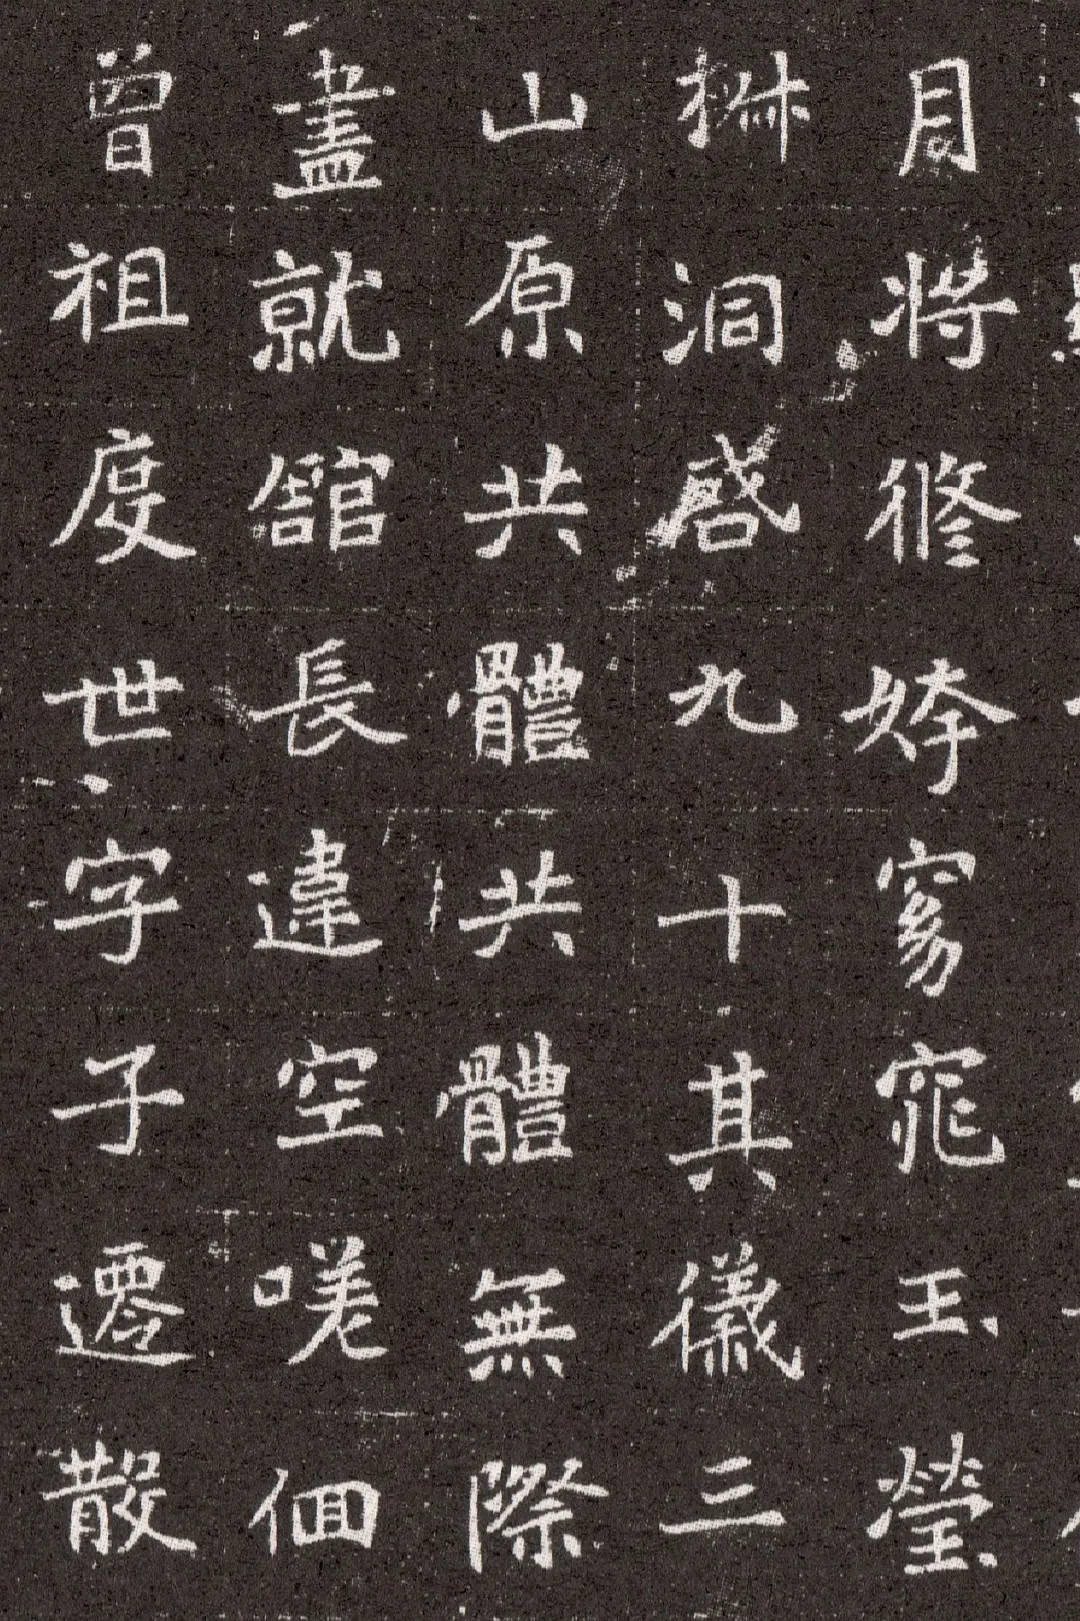 月將修姱窈窕玉瑩
洞啓九十其儀三
山原共體共體無際
盡就舘長違空嗟佪
曾祖度世字子遷散